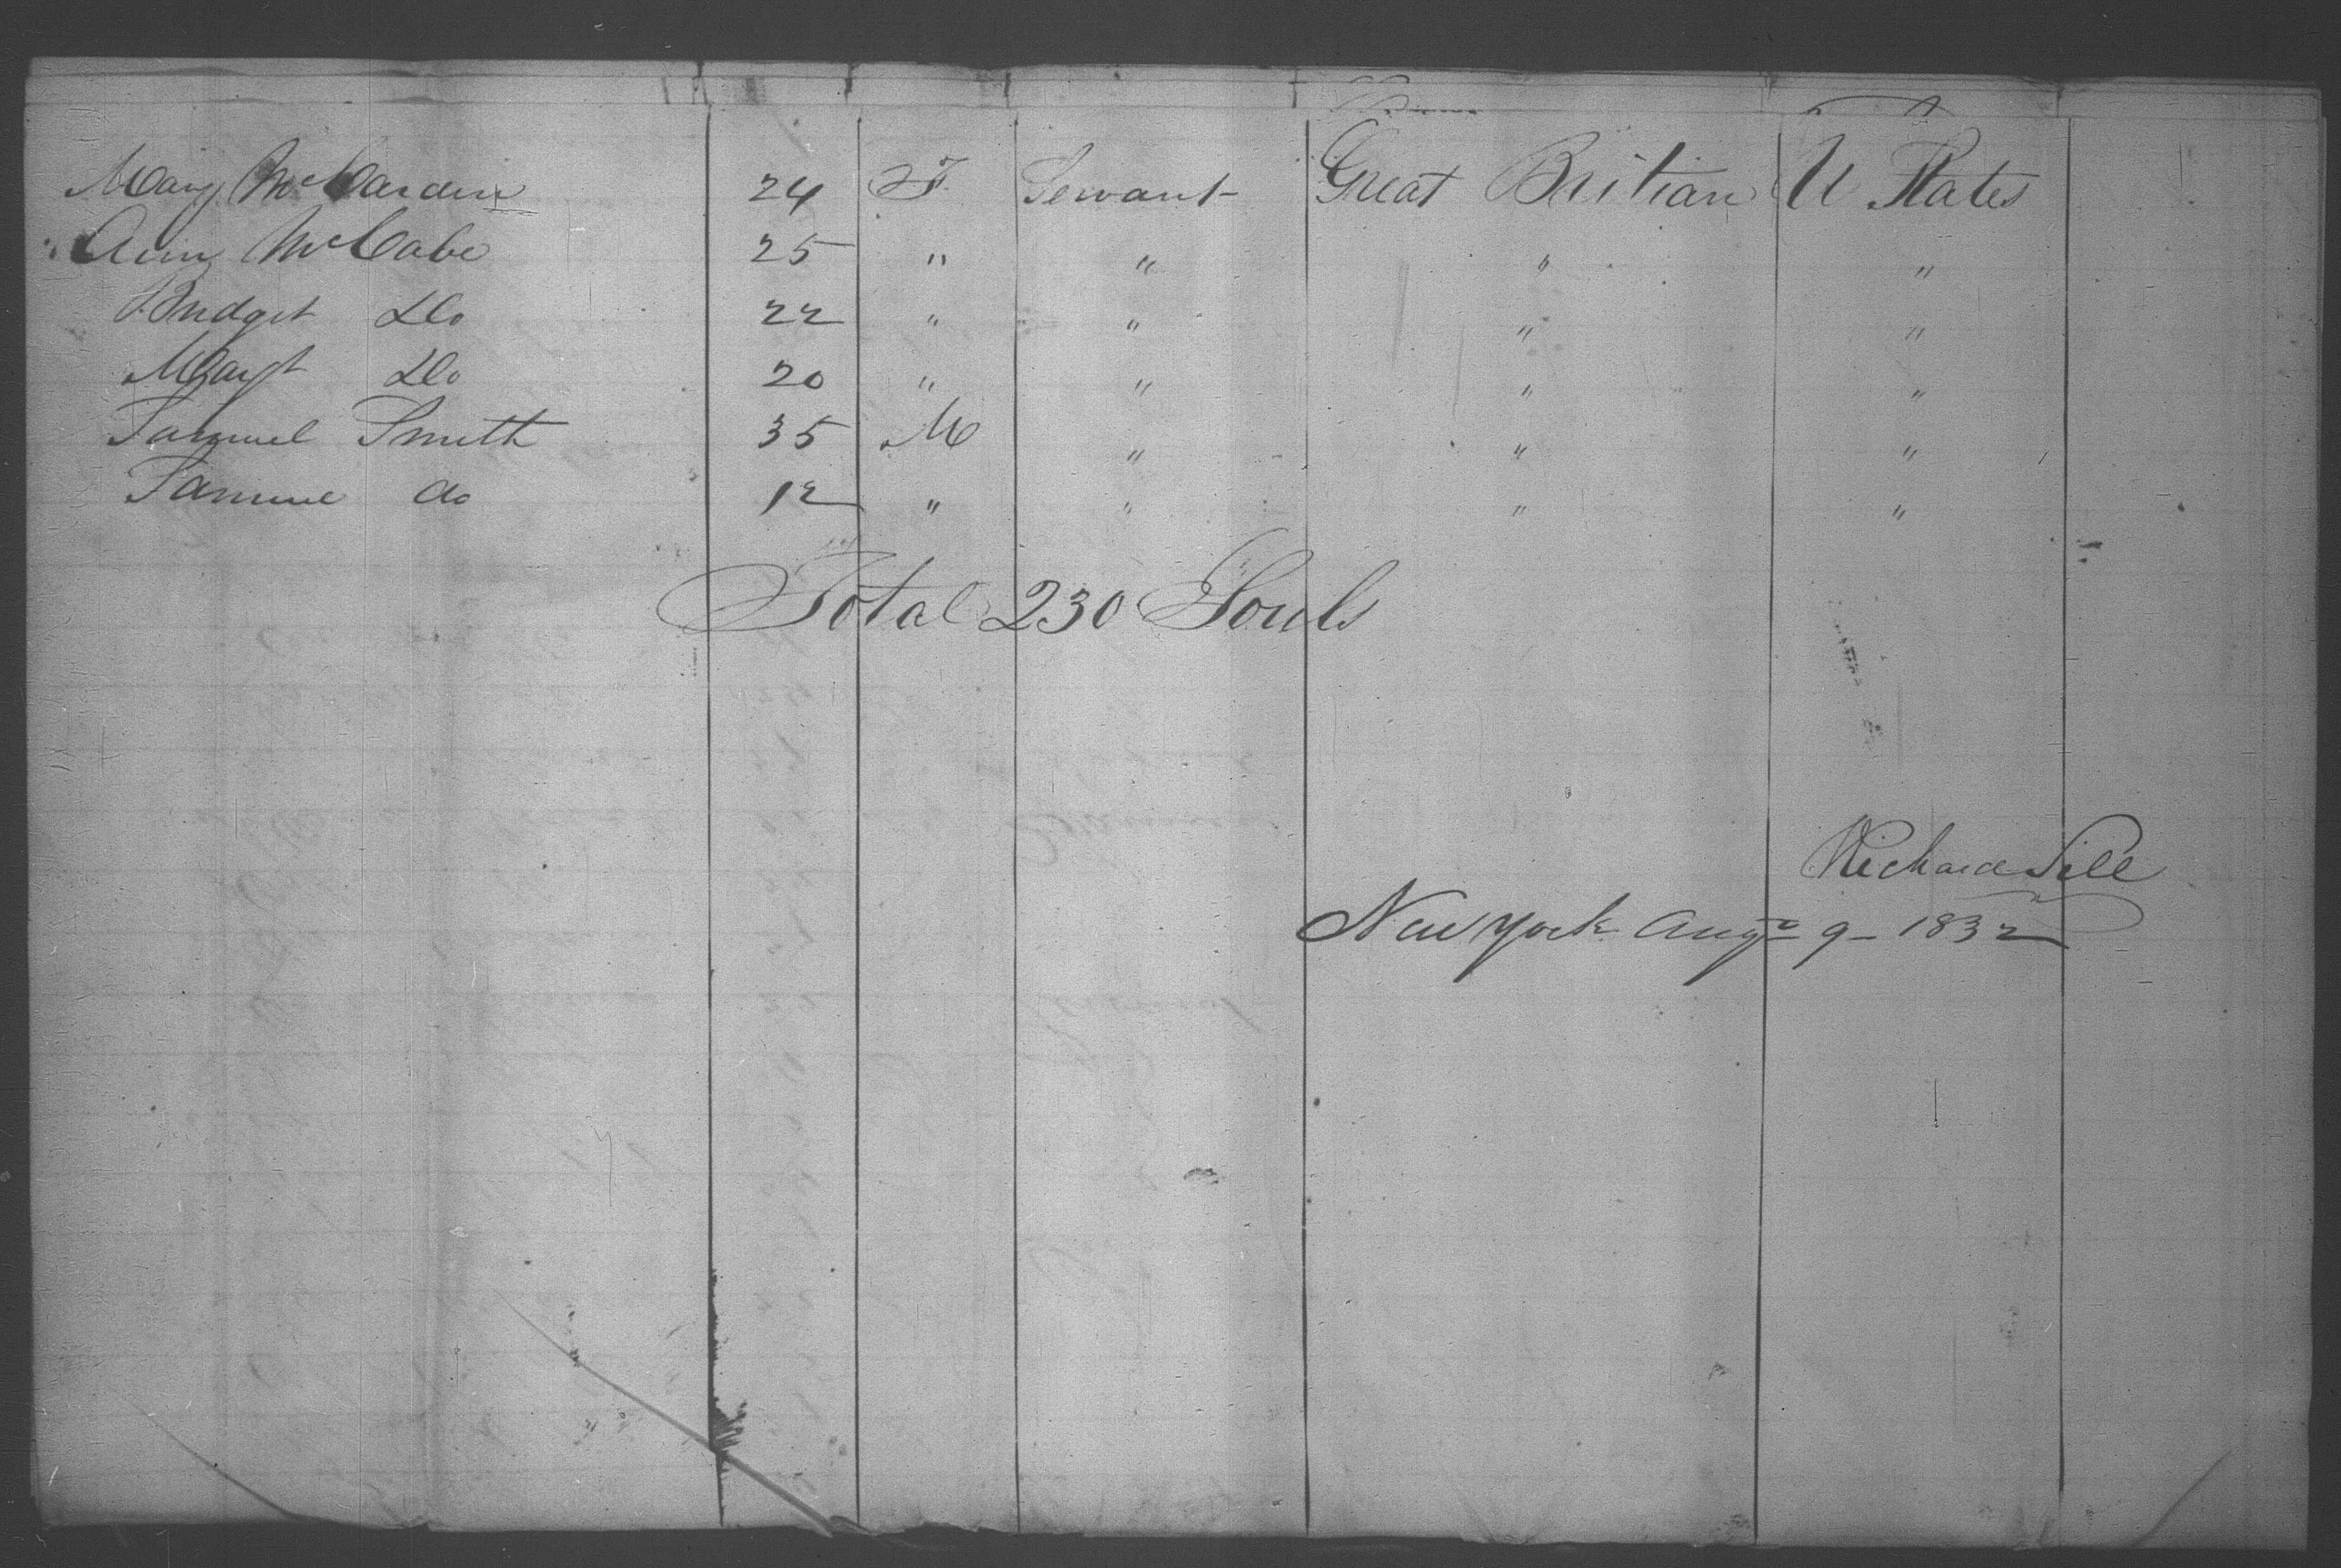 Mary McCardin 24 F Servant Great Britian U States
Ann McCabe 25 " " " "
Bridget Do 22 " " " "
Margt Do 20 " " " "
Samuel Smith 35 M " " "
Samuel do 12 " " " "
Total 230 Souls
Richard Sill
New York Augo 9 - 1832